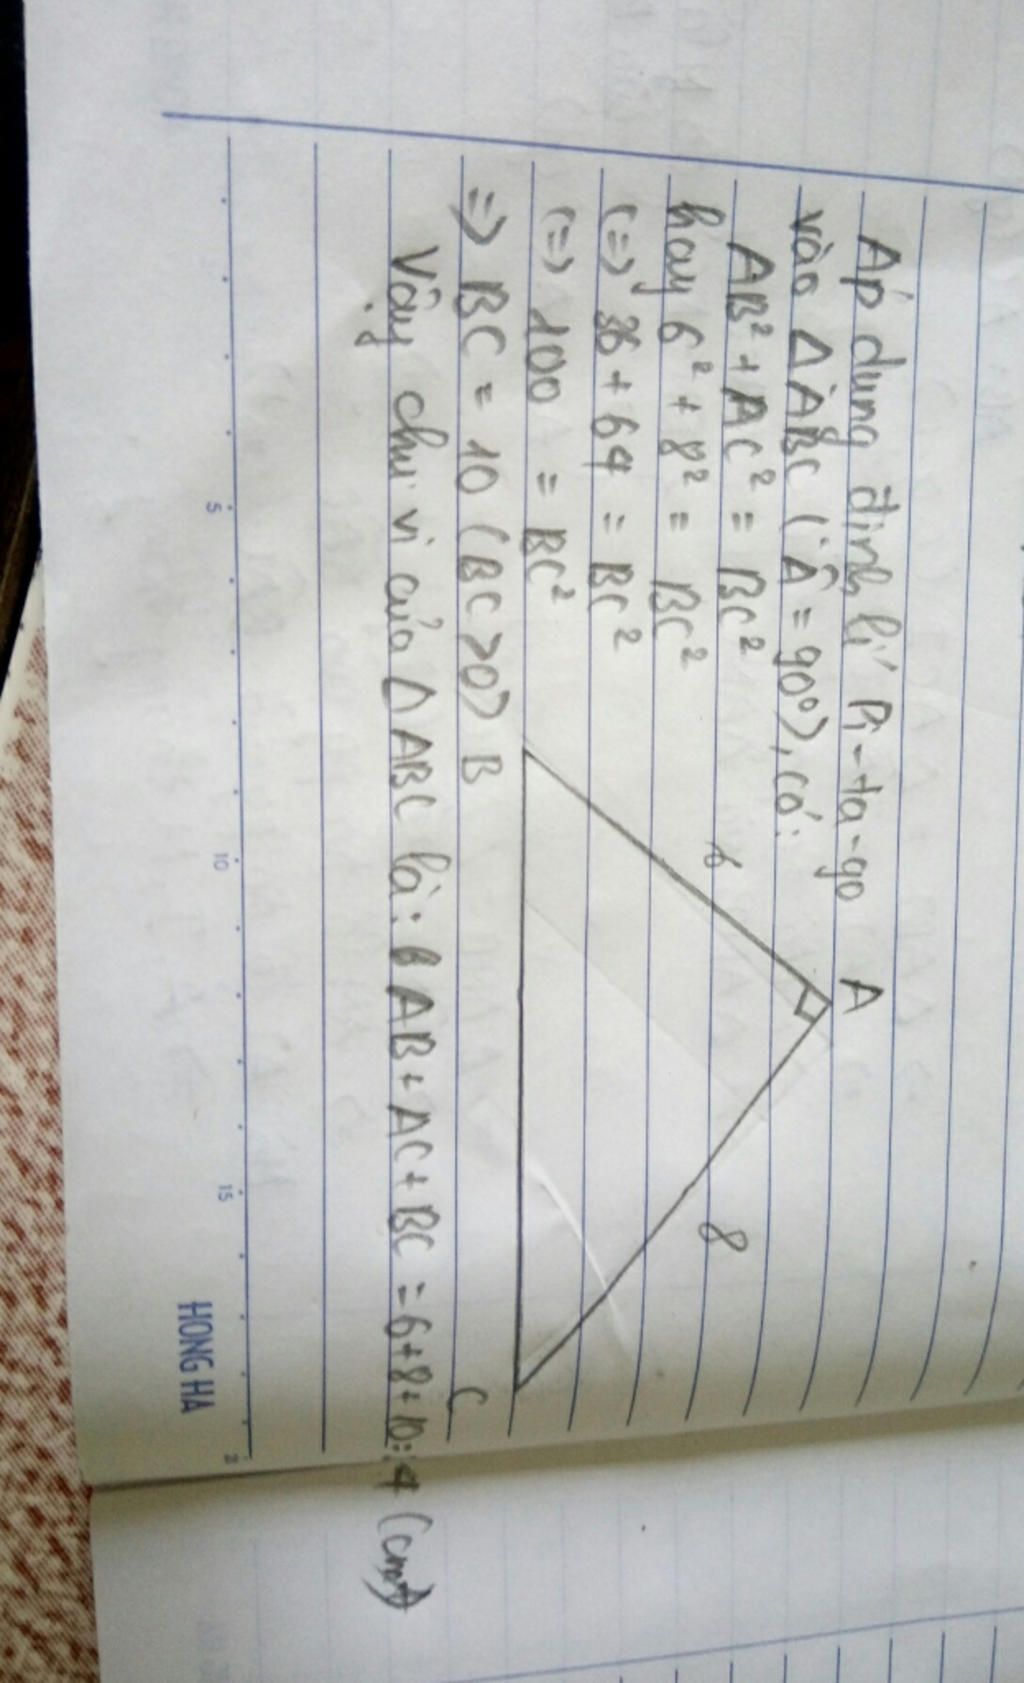 Áp dụng định lí Pi-ta-go
vào ΔABC (Â = 90⁰), có:
AB² + AC² = BC²
hay 6² + 8² = BC²
(=) 36 + 64 = BC²
(=) 100 = BC²
=) BC = 10 (BC>0)
Vậy chu vi của ΔABC là: AB + AC + BC = 6+8+10=
A
6
8
B
C
5
10
15
HONG HA